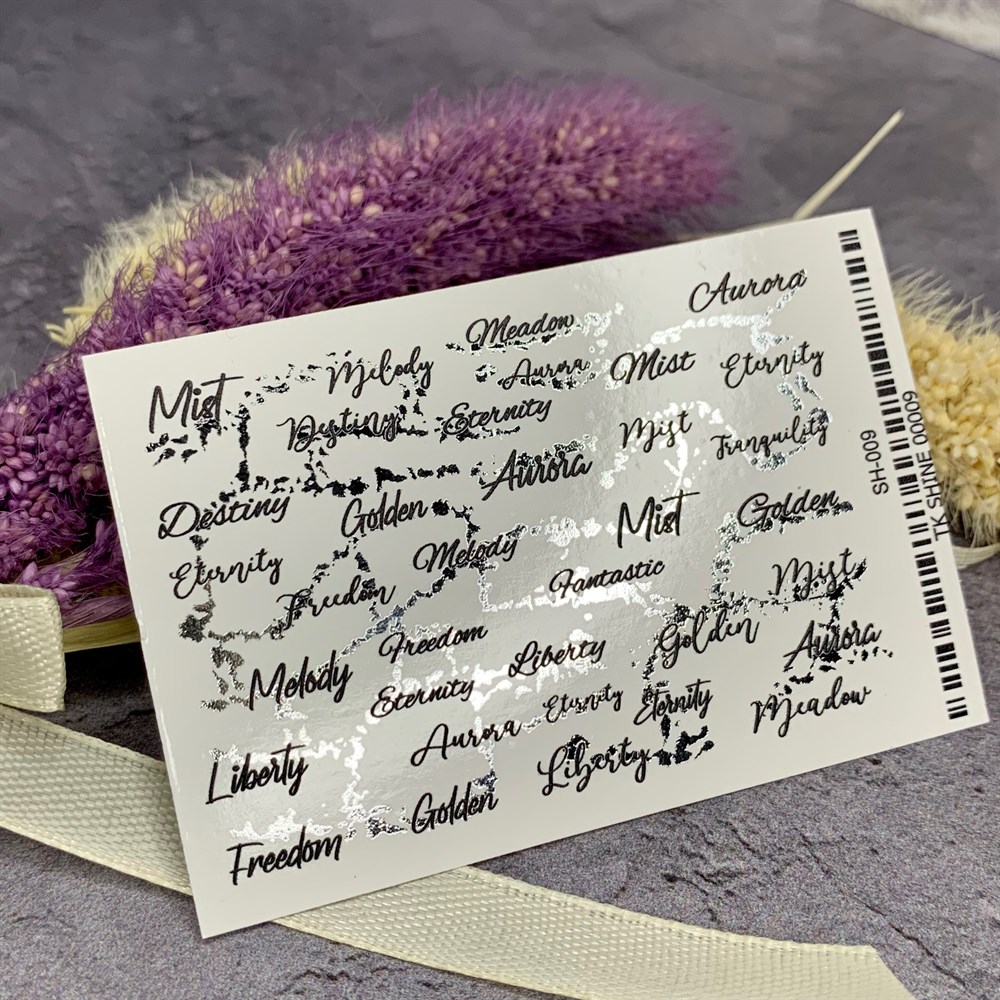 Aurora
Meadow
Mist Melody Aurora Mist Eternity
Destiny Eternity Mist Tranquility
Destiny Golden Aurora
Mist Golden
Eternity Melody
Freedom Fantastic Mist
Melody Freedom Liberty Golden Aurora
Eternity Eternity Eternity Meadow
Liberty Aurora Liberty
Freedom Golden
SH-009
TK SHINE 00009